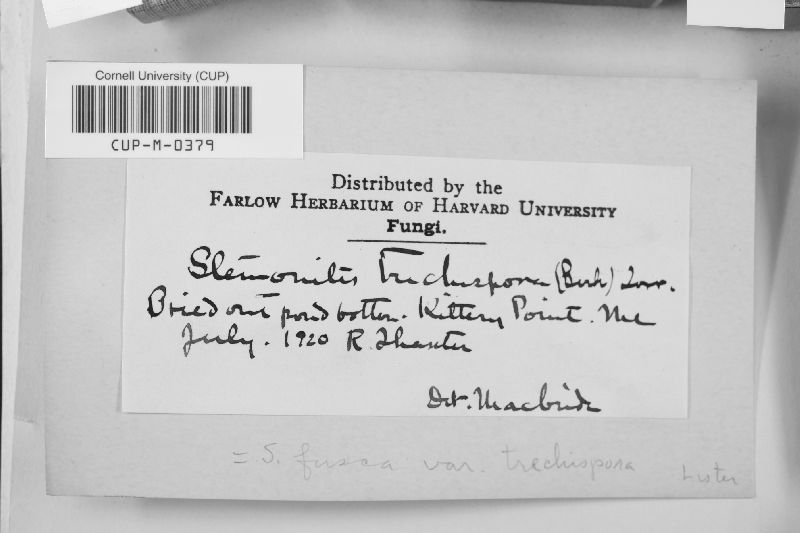 Cornell University (CUP)
CUP-M-0379
Distributed by the
FARLOW HERBARIUM OF HARVARD UNIVERSITY
Fungi.
Stemonitis trechispora (Berk) Torr.
Dried out pond bottom. Kittery Point. Me
July. 1920 R. Thaxter
Det. Macbride
= S. fusca var. trechispora Lister